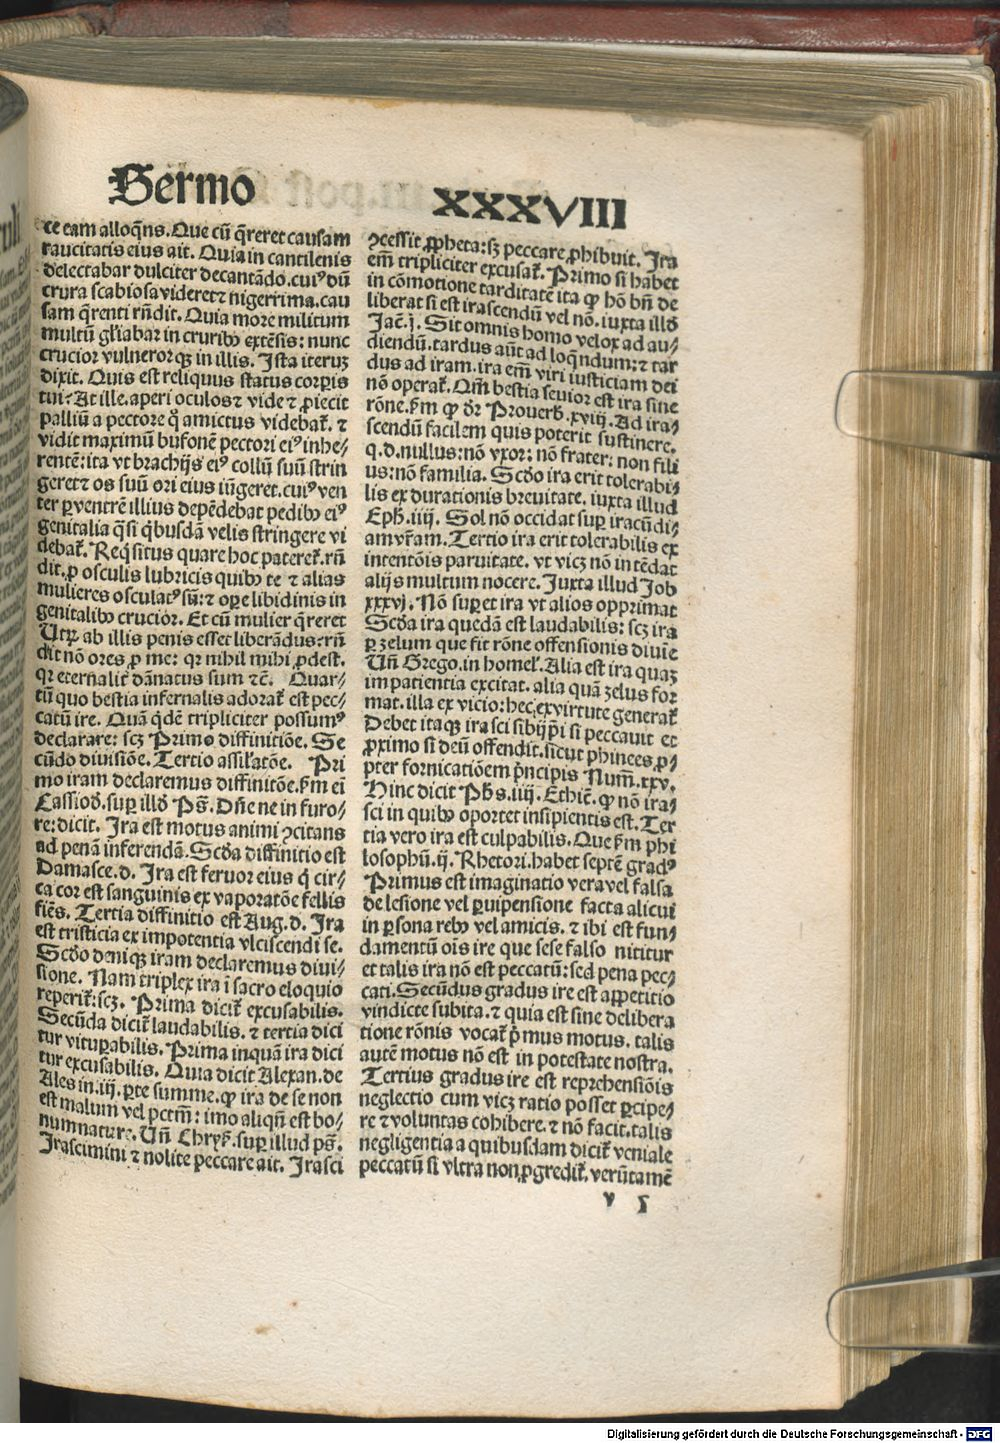 Sermo XXXVIII
ce eam alloq̄ns. Que cū q̄reret causam
raucitatis eius ait. Quia in cantilenis
delectabar dulciter decantādo. cuiꝰ dū
crura scabiosa videret ⁊ nigerrima. cau
sam q̄renti rn̄dit. Quia more militum
multū gl̓iabar in crurib⁹ extēsis: nunc
crucior vulneror qꝫ in illis. Ista iteruꝫ
dixit. Quis est reliquus status corꝑis
tui? At ille. aperi oculos ⁊ vide ⁊ ꝓiecit
palliū a pectore q̊ amictus videbat̄. ⁊
vidit maximū bufonē pectori eiꝰ inhe⸗
rentē: ita vt brachijs eiꝰ collū suū strin
geret ⁊ os suū ori eius iūgeret. cuiꝰ ven
ter ꝑ ventrē illius depēdebat pedib⁹ eiꝰ
genitalia q̄si q̇busdā velis stringere vi
debat̄. Req̇situs quare hoc pateret̄. rn̄
dit. ꝓ osculis lubricis quib⁹ te ⁊ alias
mulieres osculatꝰ sū: ⁊ oꝑe libidinis in
genitalib⁹ crucior. Et cū mulier q̄reret
Utꝝ ab illis penis esset liberādus: rn̄
dit nō ores ꝓ me: qꝛ nihil mihi ꝓdest.
qꝛ eternalit̓ dānatus sum ⁊c̄. Quar⸗
tū quo bestia infernalis adorat̄ est pec⸗
catū ire. Quā q̇dē tripliciter possumꝰ
declarare: scꝫ Primo diffinitiōe. Se
cūdo diuisiōe. Tertio assil̓atōe. Pri
mo iram declaremus diffinitōe. ẜm ei
Cassiod̓. suꝑ illd̓ Pš. Dn̄e ne in furo⸗
re: dicit. Ira est motus animi ꝯcitans
ad penā inferendā. Scd̓a diffinitio est
Damasce. d. Ira est feruor eius q̇ cir⸗
ca cor est sanguinis ex vaporatōe fellis
fiēs. Tertia diffinitio est Aug. d. Ira
est tristicia ex impotentia vlciscendi se.
Scd̓o deniqꝫ iram declaremus diui⸗
sione. Nam triplex ira ī sacro eloquio
reperit̄: scꝫ. Prima dicit̄ excusabilis.
Secūda dicit̄ laudabilis. ⁊ tertia dici
tur vituꝑabilis. Prima inquā ira dici
tur excusabilis. Quia dicit Alexan. de
Ales in. iij. ꝑte summe. ꝙ ira de se non
est malum vel pctm̄: imo aliqn̄ est bo⸗
num nature. Un̄ Chryꝭ. suꝑ illud pš.
Irascimini ⁊ nolite peccare ait. Irasci
ꝯcessit ꝓpheta: sꝫ peccare ꝓhibuit. Ira
em̄ tripliciter excusat̄. Primo si habet
in cōmotione tarditatē ita ꝙ hō bn̄ de
liberat si est irascendū vel nō. iuxta illd̓
Jac̄. j. Sit omnis homo velox ad au⸗
diendū. tardus aūt ad loq̄ndum: ⁊ tar
dus ad iram. ira em̄ viri iusticiam dei
nō operat̄. Om̄ bestia seuior est ira sine
rōne. ẜm ꝙ dr̄ Prouerb̓. xviij. Ad ira⸗
scendū facilem quis poterit sustinere.
q. d. nullus: nō vxor: nō frater: non fili
us: nō familia. Scd̓o ira erit tolerabi⸗
lis ex durationis breuitate. iuxta illud
Eph̓. iiij. Sol nō occidat suꝑ iracūdi⸗
am vr̄am. Tertio ira erit tolerabilis ex
intentōis paruitate. vt vicꝫ nō intēdat
alijs multum nocere. Iuxta illud Job
xxxvj. Nō suꝑet ira vt alios opprimat
Scd̓a ira quedā est laudabilis: scꝫ ira
ꝑ zelum que fit rōne offensionis diuīe
Un̄ Grego. in homel̓. Alia est ira quaꝫ
impatientia excitat. alia quā zelus for
mat. illa ex vicio: hec ex virtute generat̄
Debet itaqꝫ irasci sibijp̄i si peccauit et
ꝓximo si deū offendit. sicut phinees ꝓ⸗
pter fornicatiōem p̄ncipis Num̄. xxv.
Hinc dicit Ph̓s. iiij. Ethic̄. ꝙ nō ira⸗
sci in quib⁹ oportet insipientis est. Ter
tia vero ira est culpabilis. Que ẜm phi
losophū. ij. Rhetori. habet septē gradꝰ
Primus est imaginatio vera vel falsa
de lesione vel ꝑuipensione facta alicui
in ꝑsona reb⁹ vel amicis. ⁊ ibi est fun⸗
damentū ois ire que sese falso nititur
et talis ira nō est peccatū: sed pena pec⸗
cati. Secūdus gradus ire est appetitio
vindicte subita. ⁊ quia est sine delibera
tione rōnis vocat̄ p̄mus motus. talis
autē motus nō est in potestate nostra.
Tertius gradus ire est reprehensiōis
neglectio cum vicꝫ ratio posset ꝑcipe⸗
re ⁊ voluntas cohibere. ⁊ nō facit. talis
negligentia a quibusdam dicit̄ veniale
peccatū si vltra non ꝓgredit̄. verūtamē
v 5
Digitalisierung gefördert durch die Deutsche Forschungsgemeinschaft - DFG